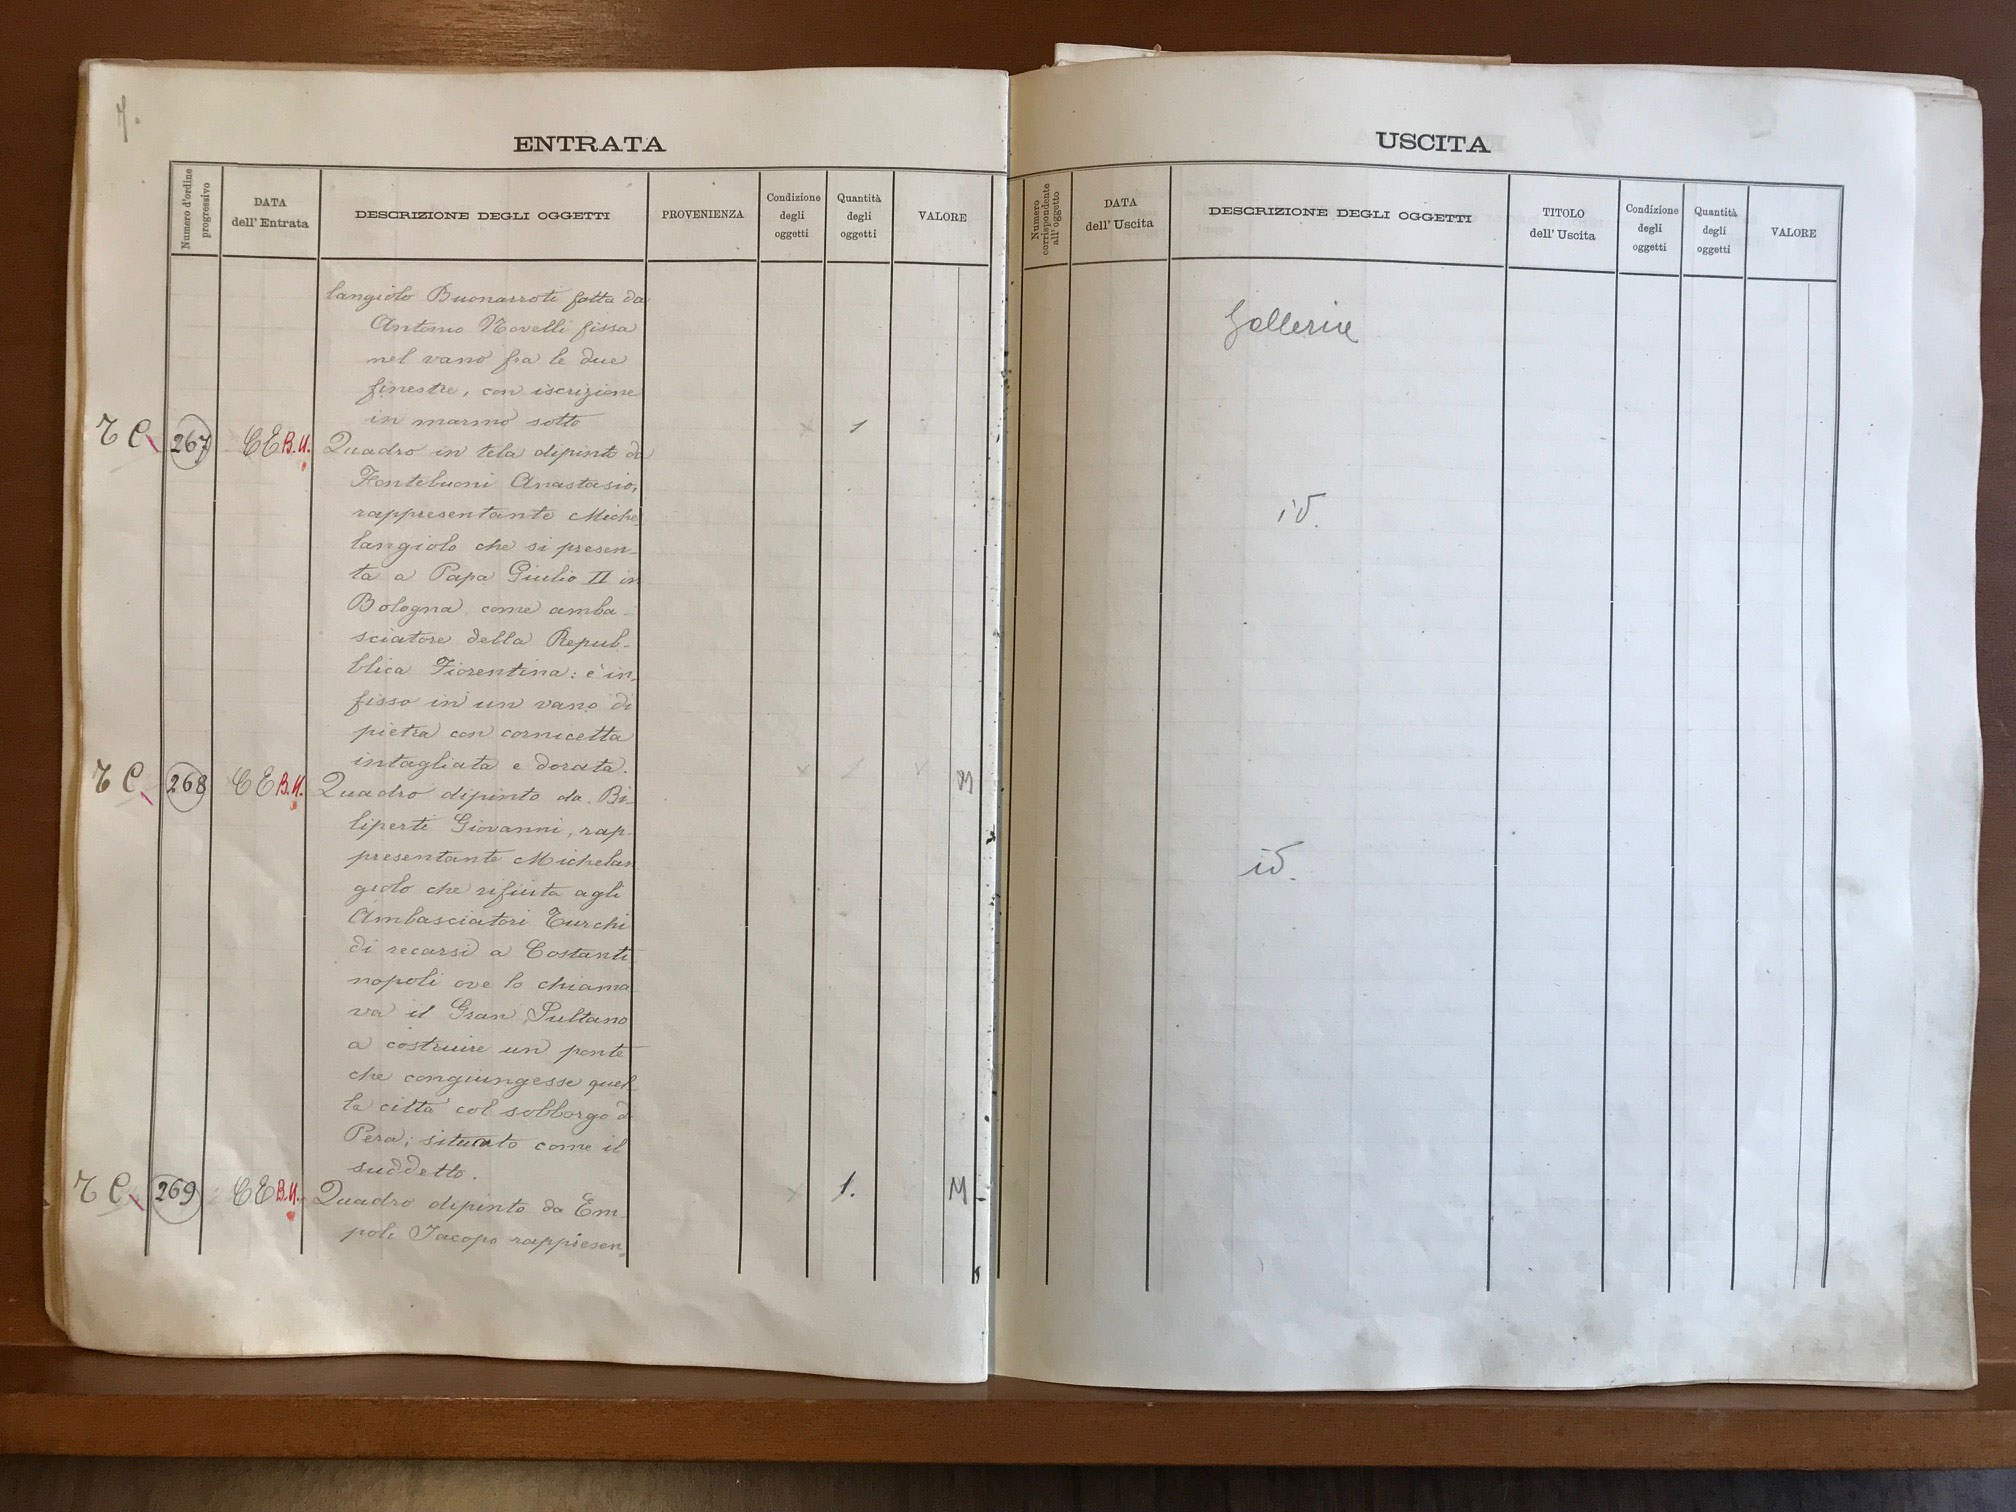 7.
ENTRATA
Numero d'ordine progressivo
DATA dell' Entrata
DESCRIZIONE DEGLI OGGETTI
PROVENIENZA
Condizione degli oggetti
Quantità degli oggetti
VALORE
langiolo Buonarroti fatta da
Antonio Novelli fissa
nel vano fra le due
finestre, con iscrizione
in marmo sotto 1
267 CE B.U. Quadro in tela dipinto da
Fontebuoni Anastasio,
rappresentante Miche
langiolo che si presen-
ta a Papa Giulio II in
Bologna come amba-
sciatore della Repub-
blica Fiorentina: è in-
fisso in un vano di
pietra con cornicetta
intagliata e dorata. 1 M
268 CE B.U. Quadro dipinto da Bi-
liperti Giovanni, rap-
presentante Michelan
giolo che rifiuta agli
Ambasciatori Turchi
di recarsi a Costanti
nopoli ove lo chiama
va il Gran Sultano
a costruire un ponte
che congiungesse quel-
la città col sobborgo di
Pera; situato come il
suddetto. 1. M
269 CE B.U. Quadro dipinto da Em-
poli Jacopo rappresen-
USCITA
Numero corrispondente all' oggetto
DATA dell' Uscita
DESCRIZIONE DEGLI OGGETTI
TITOLO dell' Uscita
Condizione degli oggetti
Quantità degli oggetti
VALORE
Gallerie
id.
id.